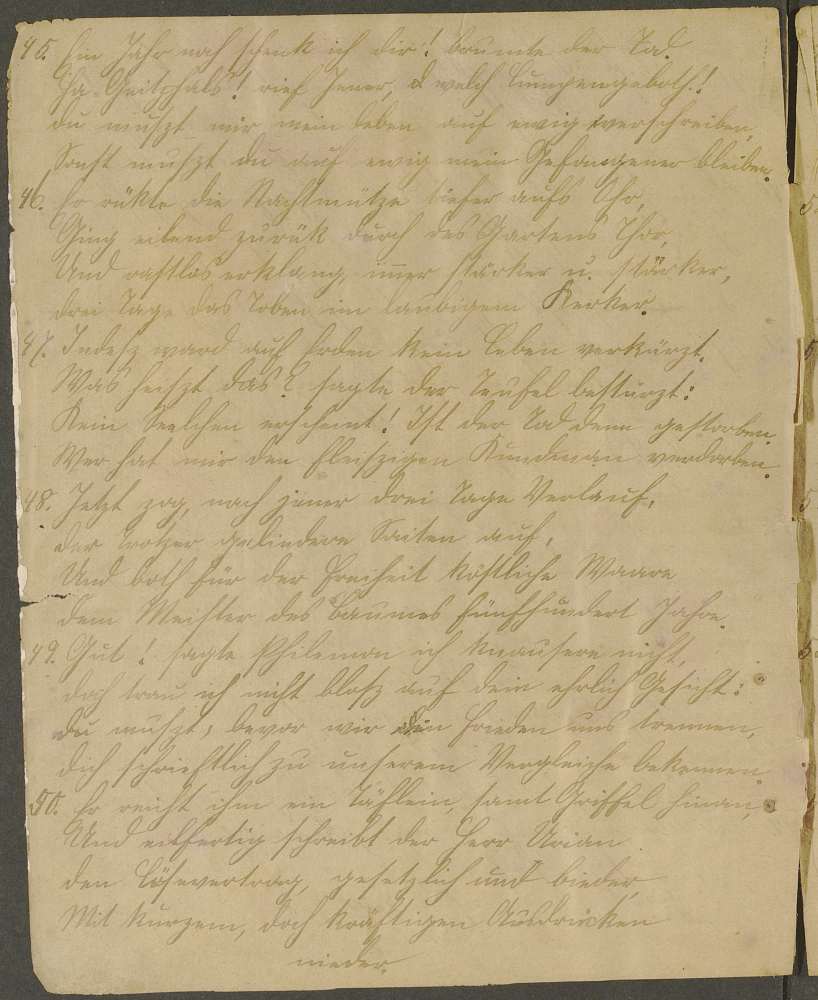 45. Ein Jahr noch schenk ich dir! brumte der Tod.
Ha Geitzhals! rief Jener, welch Lumpengeboth!
du muszt mir mein Leben auf ewig verschreiben,
Sonst muszt du auf ewig mein Gefangener bleiben.
46. Er rükte die Nachtmütze tiefer aufs Ohr,
Ging eilend zurük durch des Gartens Thor,
Und rastlos erklang, imer stärker u. stärker,
drei Tage das Toben im laubigem Kerker.
47. Indesz ward auf Erden kein Leben verkürzt.
Was heiszt das? sagte der Teufel bestürzt:
Kein Seelchen erscheint! Ist der Tod denn gestorben.
Wer hat mir den fleiszigen Kundman verdorben.
48. Jetzt zog, nach jener drei Tage Verlauf,
der Trotzer gelindere Saiten auf,
Und both für der Freiheit köstliche Waare
dem Meister des Baumes fünfhundert Jahre.
49. Gut! sagte Philemon ich knausere nicht,
doch trau ich nicht blosz auf dein ehrlich Gesicht:
du muszt, bevor wir in Frieden uns trennen,
dich schrieftlich zu unserem Vergleiche bekennen.
50. Er reicht ihm ein Täflein, samt Griffel hinan,
Und eilfertig schreibt der Herr Urian
den Lösevertrag, gesetzlich und bieder,
Mit kurzem, doch kräftigen Ausdrücken
nieder.